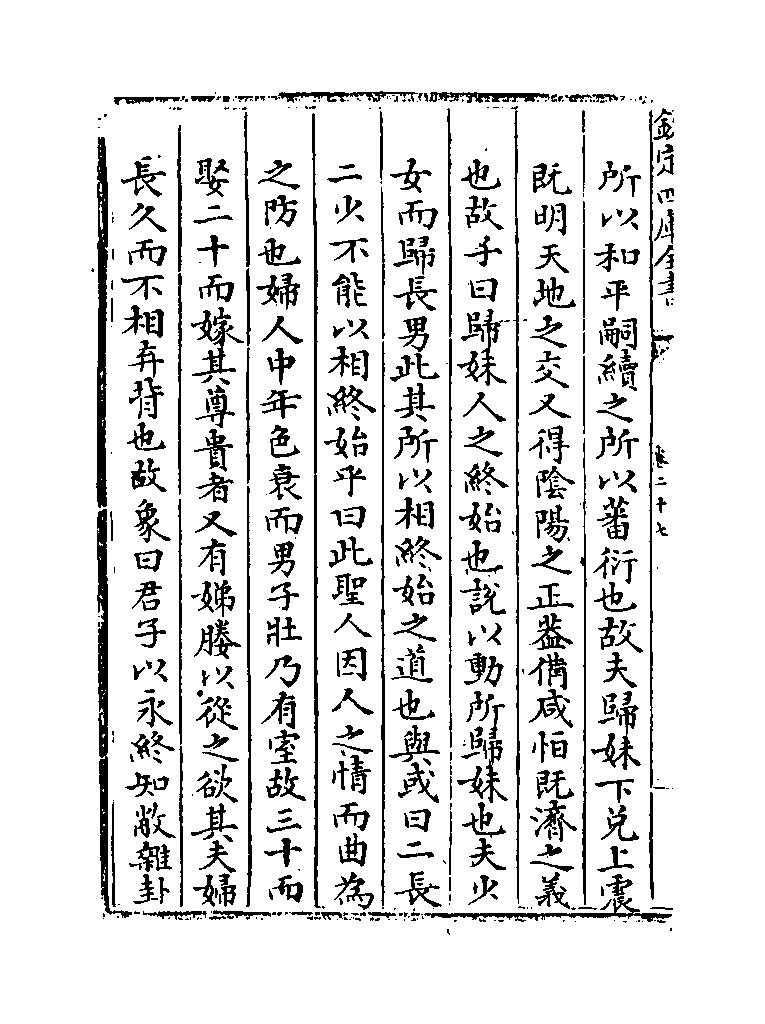 欽定四庫全書
卷二十七
所以和平嗣續之所以蕃衍也故夫歸妹下兌上震
既明天地之交又得陰陽之正葢備咸恒既濟之義
也故子曰歸妹人之終始也說以動所歸妹也夫少
女而歸長男此其所以相終始之道也與或曰二長
二少不能以相終始乎曰此聖人因人之情而曲為
之防也婦人中年色衰而男子壯乃有室故三十而
娶二十而嫁其尊貴者又有娣媵以從之欲其夫婦
長久而不相弃背也故象曰君子以永終知敝雜卦